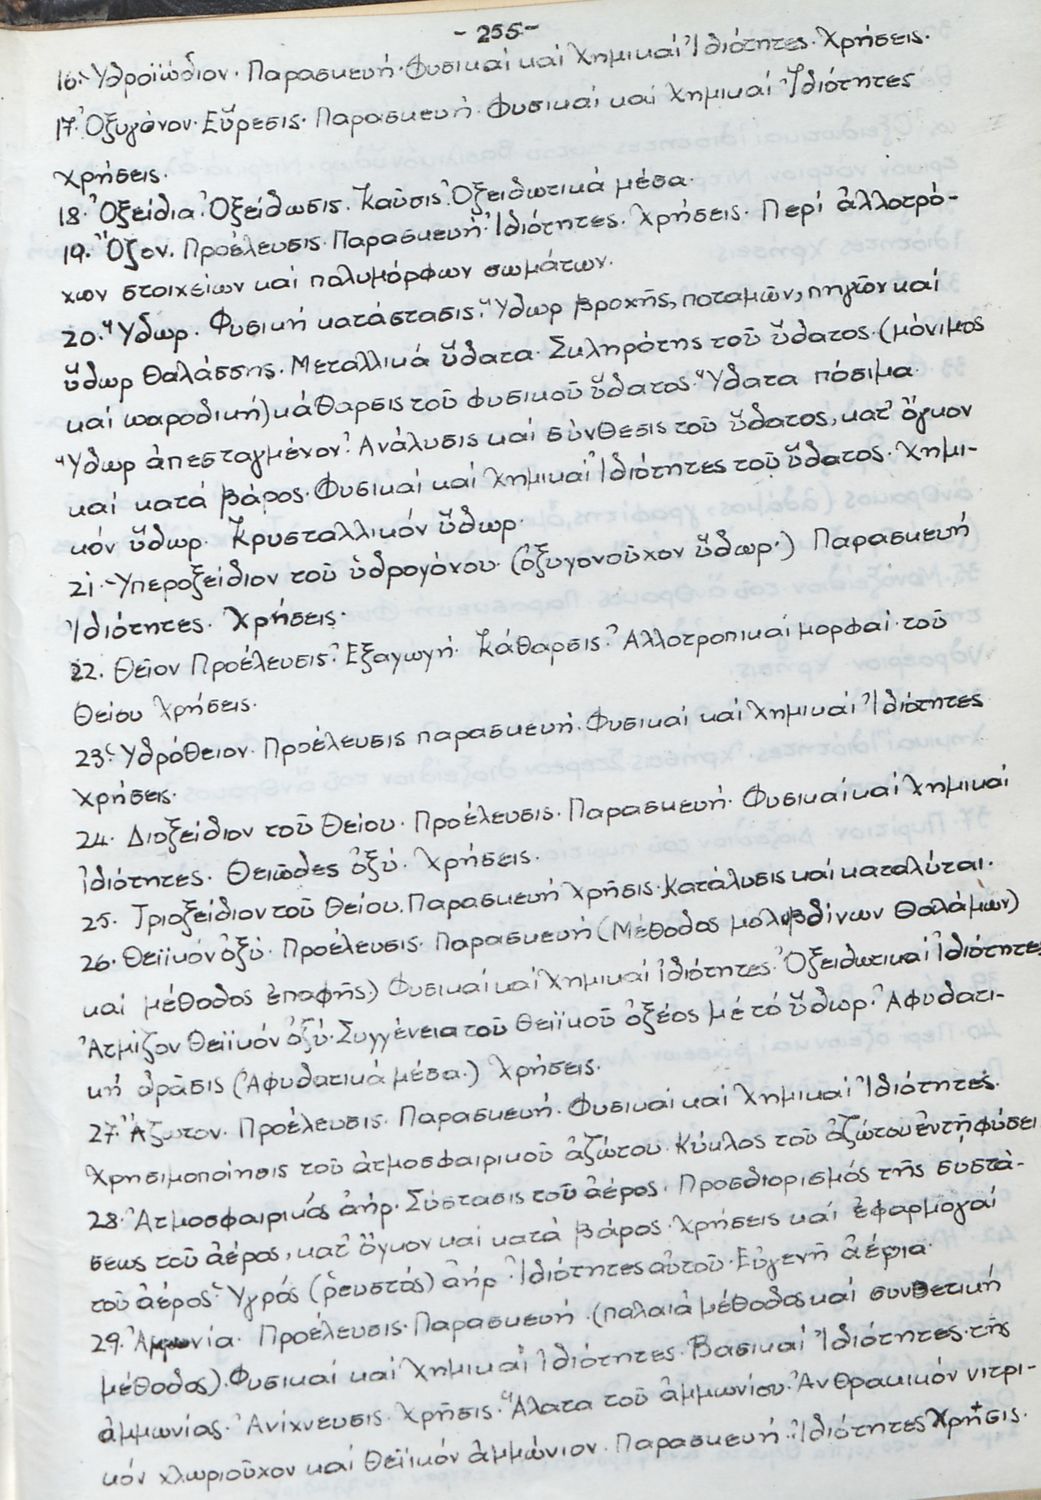 - 255 -
16. Ὑδροϊώδιον. Παρασκευή. Φυσικαί καί Χημικαί Ἰδιότητες. Χρήσεις.
17. Ὀξυγόνον. Εὕρεσις. Παρασκευή. Φυσικαί καί Χημικαί Ἰδιότητες
Χρήσεις.
18. Ὀξείδια. Ὀξείδωσις. Καῦσις. Ὀξειδωτικά μέσα.
19. Ὄζον. Προέλευσις. Παρασκευή. Ἰδιότητες. Χρήσεις. Περί ἀλλοτρό-
χων στοιχείων καί πολυμόρφων σωμάτων.
20. Ὕδωρ. Φυσική κατάστασις. Ὕδωρ βροχῆς, ποταμῶν, πηγῶν καί
ὕδωρ θαλάσσης. Μεταλλικά ὕδατα. Σκληρότης τοῦ ὕδατος. (μόνιμος
καί παροδική) κάθαρσις τοῦ φυσικοῦ ὕδατος. Ὕδατα πόσιμα.
Ὕδωρ ἀπεσταγμένον. Ἀνάλυσις καί σύνθεσις τοῦ ὕδατος, κατ' ὄγκον
καί κατά βάρος. Φυσικαί καί Χημικαί Ἰδιότητες τοῦ ὕδατος. Χημι-
κόν ὕδωρ. Κρυσταλλικόν ὕδωρ.
21. Ὑπεροξείδιον τοῦ ὑδρογόνου. (ὀξυγονοῦχον ὕδωρ.) Παρασκευή
Ἰδιότητες. Χρήσεις.
22. Θεῖον Προέλευσις. Ἐξαγωγή. Κάθαρσις. Ἀλλοτροπικαί μορφαί τοῦ
Θείου Χρήσεις.
23. Ὑδρόθειον. Προέλευσις παρασκευή. Φυσικαί καί Χημικαί Ἰδιότητες
Χρήσεις.
24. Διοξείδιον τοῦ Θείου. Προέλευσις. Παρασκευή. Φυσικαί καί Χημικαί
Ἰδιότητες. Θειῶδες ὀξύ. Χρήσεις.
25. Τριοξείδιον τοῦ Θείου. Παρασκευή Χρῆσις. Κατάλυσις καί καταλύται.
26. Θειϊκόν ὀξύ. Προέλευσις. Παρασκευή (Μέθοδος μολυβδίνων θαλάμων)
καί μέθοδος ἐπαφῆς) Φυσικαί καί Χημικαί ἰδιότητες. Ὀξειδωτικαί Ἰδιότητες
Ἀτμίζον Θειϊκόν ὀξύ. Συγγένεια τοῦ Θειϊκοῦ ὀξέος μέ τό ὕδωρ. Ἀφυδατι-
κή δρᾶσις (Ἀφυδατικά μέσα.) Χρήσεις.
27. Ἄζωτον. Προέλευσις. Παρασκευή. Φυσικαί καί Χημικαί Ἰδιότητες.
Χρησιμοποίησις τοῦ ἀτμοσφαιρικοῦ ἀζώτου. Κύκλος τοῦ ἀζώτου ἐν τῇ φύσει
28. Ἀτμοσφαιρικός ἀήρ. Σύστασις τοῦ ἀέρος. Προσδιορισμός τῆς συστά-
σεως τοῦ ἀέρος, κατ' ὄγκον καί κατά βάρος. Χρήσεις καί ἐφαρμογαί
τοῦ ἀέρος. Ὑγρός (ῥευστός) ἀήρ. Ἰδιότητες αὐτοῦ. Εὐγενῆ ἀέρια.
29. Ἀμμωνία. Προέλευσις. Παρασκευή. (παλαιά μέθοδος καί συνθετική
μέθοδος). Φυσικαί καί Χημικαί Ἰδιότητες. Βασικαί Ἰδιότητες τῆς
ἀμμωνίας. Ἀνίχνευσις. Χρῆσις. Ἅλατα τοῦ ἀμμωνίου. Ἀνθρακικόν νιτρι-
κόν χλωριοῦχον καί Θειϊκόν ἀμμώνιον. Παρασκευή. Ἰδιότητες Χρῆσις.